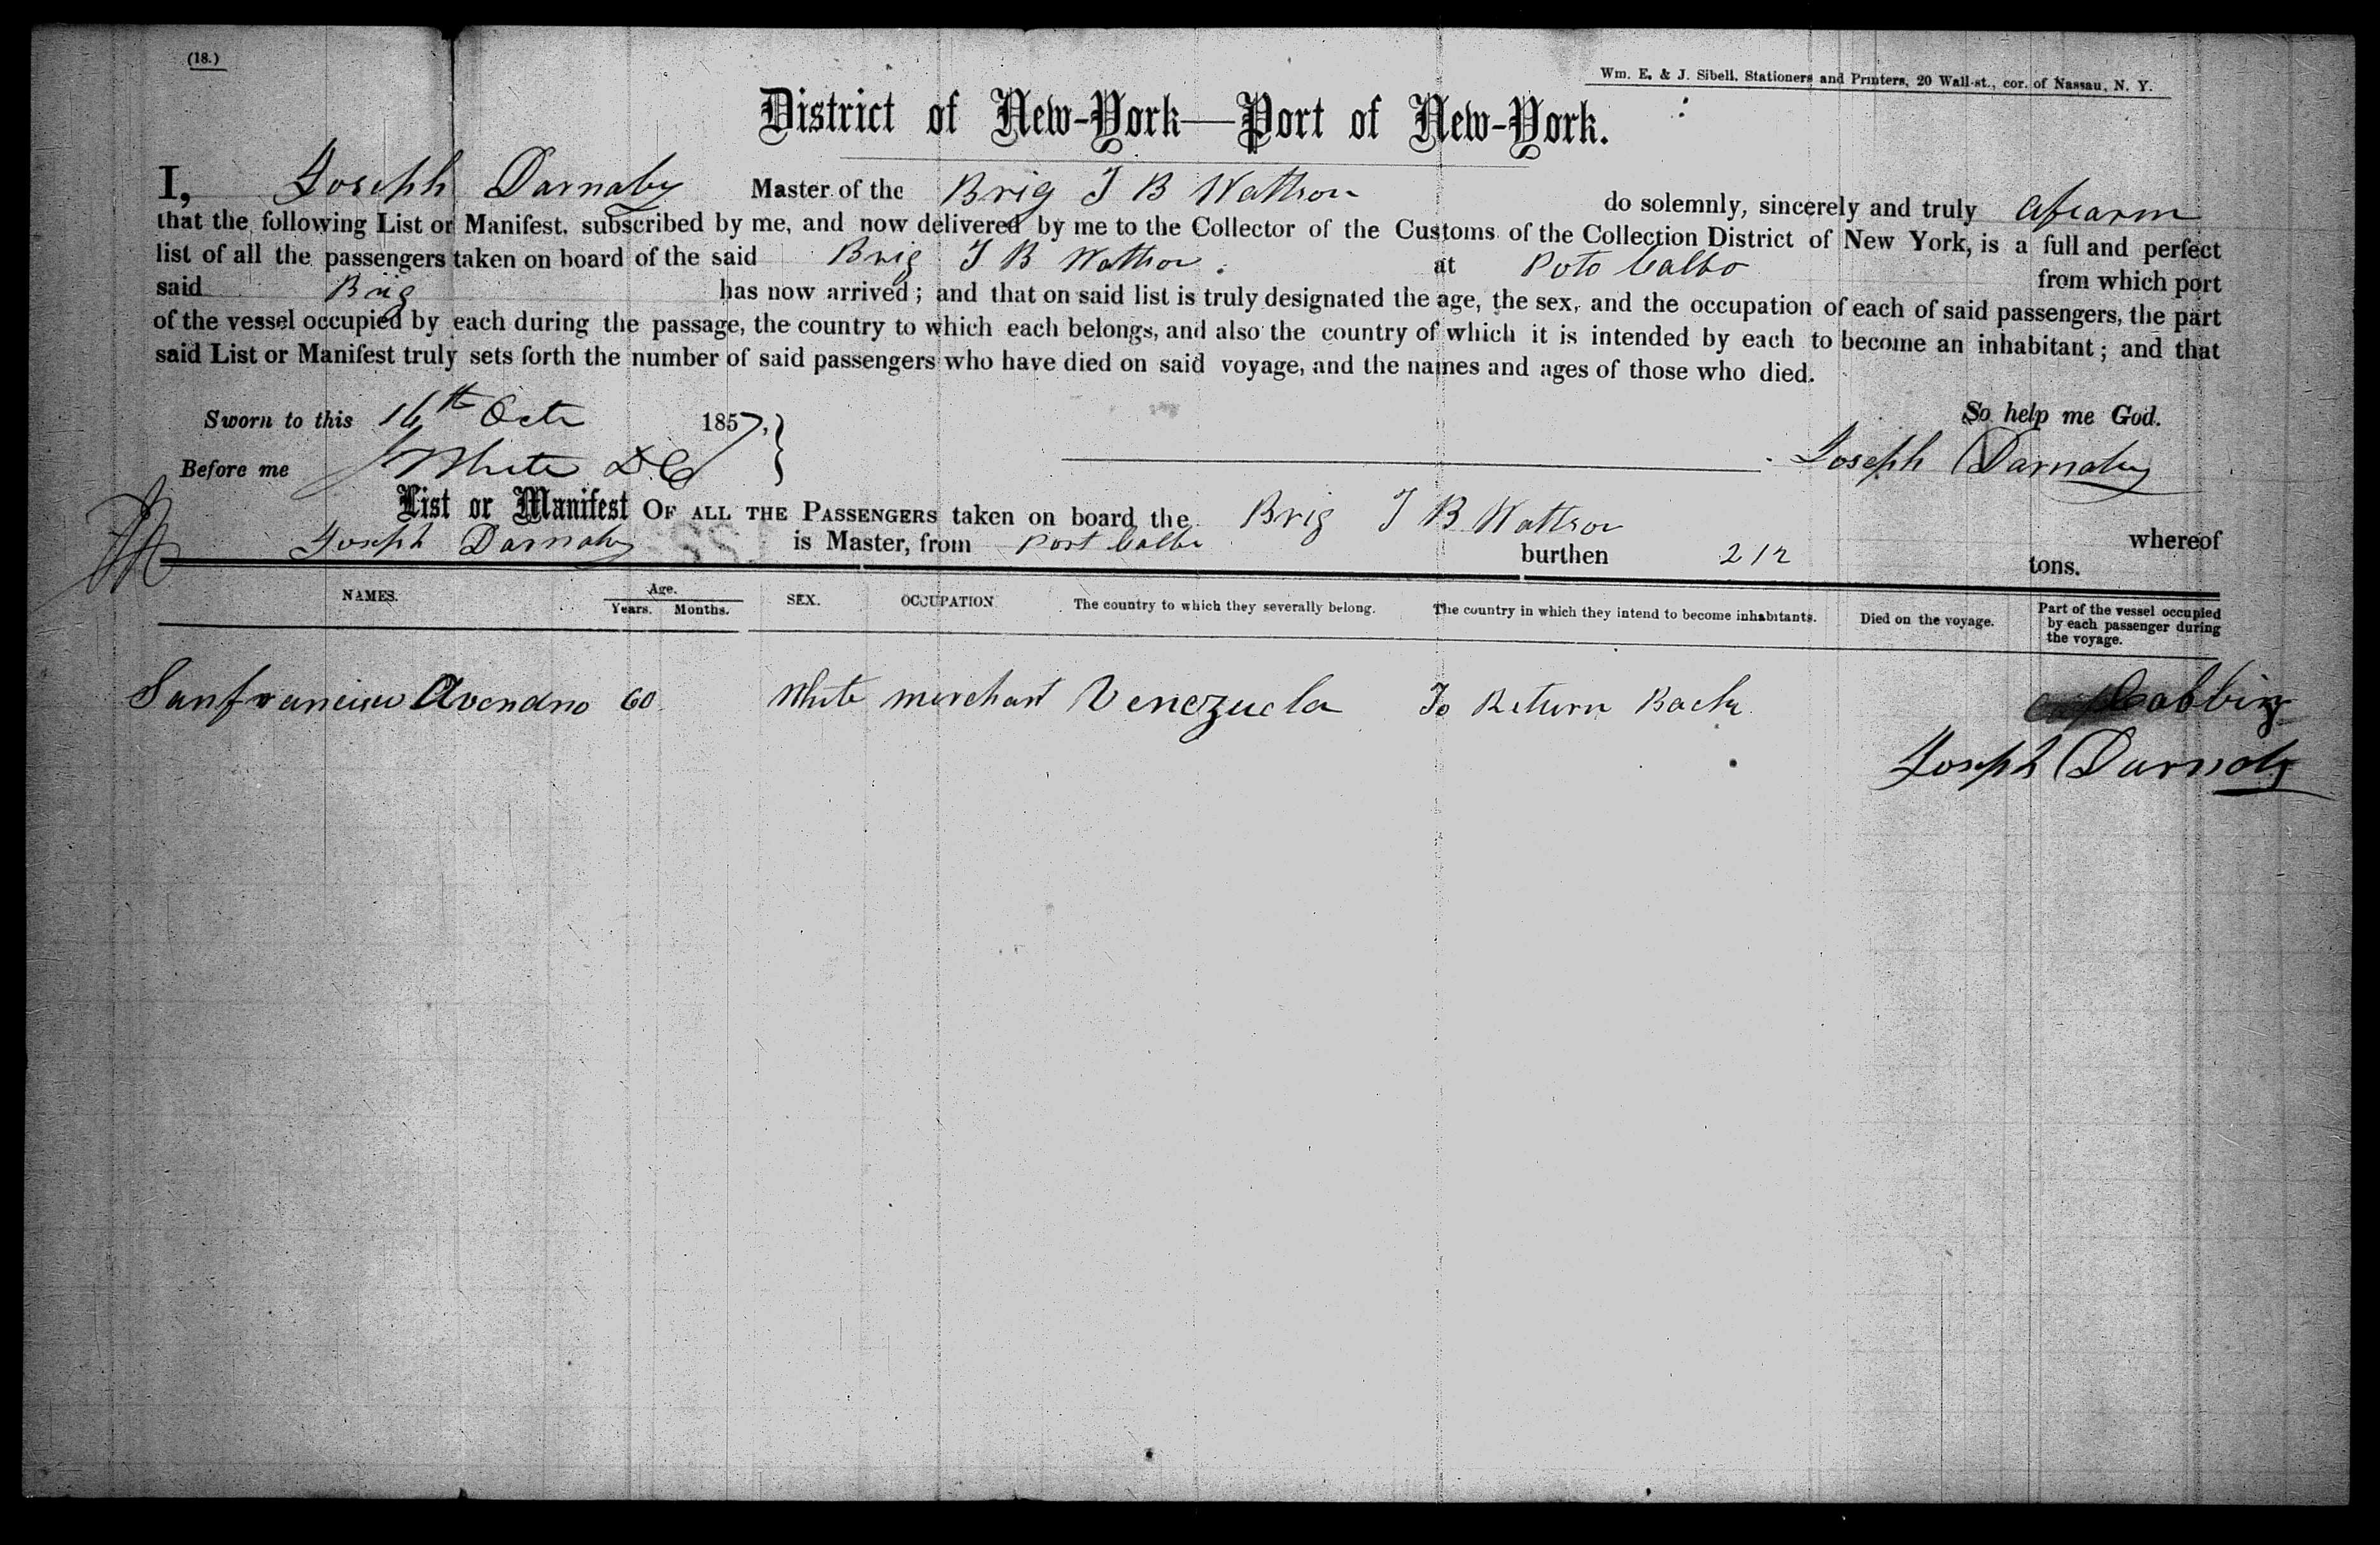 (18.)
Wm. E. & J. Sibell, Stationers and Printers, 20 Wall-st., cor. of Nassau, N. Y.
District of New-York—Port of New-York.
I, Joseph Darnaby Master of the Brig T B Wattson do solemnly, sincerely and truly afearm
that the following List or Manifest, subscribed by me, and now delivered by me to the Collector of the Customs of the Collection District of New York, is a full and perfect
list of all the passengers taken on board of the said Brig T B Wattson. at Poto Calbo from which port
said Brig has now arrived; and that on said list is truly designated the age, the sex, and the occupation of each of said passengers, the part
of the vessel occupied by each during the passage, the country to which each belongs, and also the country of which it is intended by each to become an inhabitant; and that
said List or Manifest truly sets forth the number of said passengers who have died on said voyage, and the names and ages of those who died.
Sworn to this 16th Octr 1857, So help me God.
Before me White D C Joseph Darnaby
List or Manifest OF ALL THE PASSENGERS taken on board the Brig T B Wattson whereof
Joseph Darnaby is Master, from Port Calbo burthen 212 tons.
NAMES. Age. Years. Months. SEX. OCCUPATION The country to which they severally belong. The country in which they intend to become inhabitants. Died on the voyage. Part of the vessel occupied by each passenger during the voyage.
Sanfrancisco Avendno 60 White merchant Venezuela To Return Back Cabbin
Joseph Darnaby